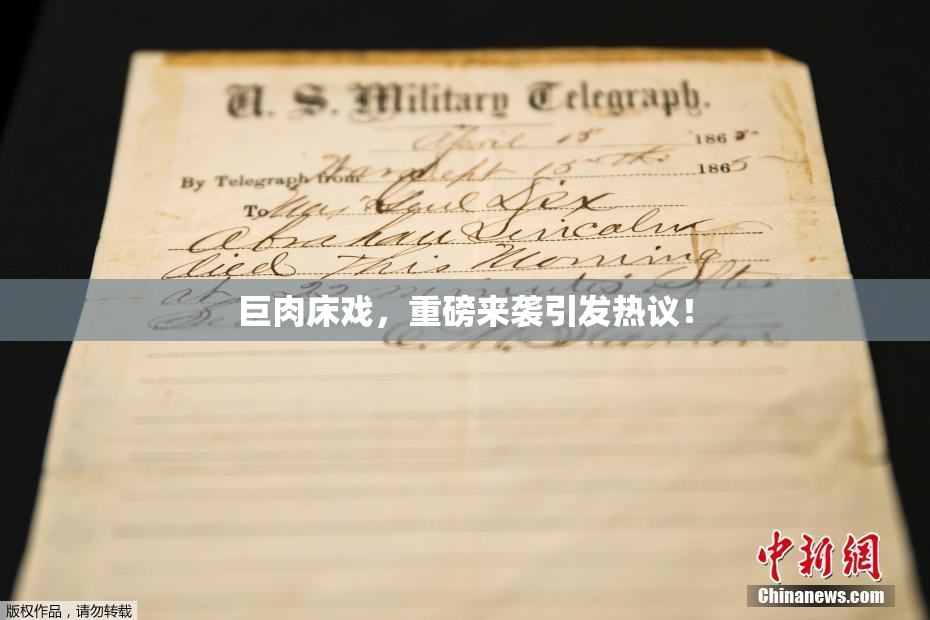 U. S. Military Telegraph.
April 15 1865
By Telegraph from War Dept 15th 1865
To Maj Genl Dix
Abraham Lincoln
died This Morning
at 22 minutes after
巨肉床戏，重磅来袭引发热议！
中新网
Chinanews.com
版权作品，请勿转载